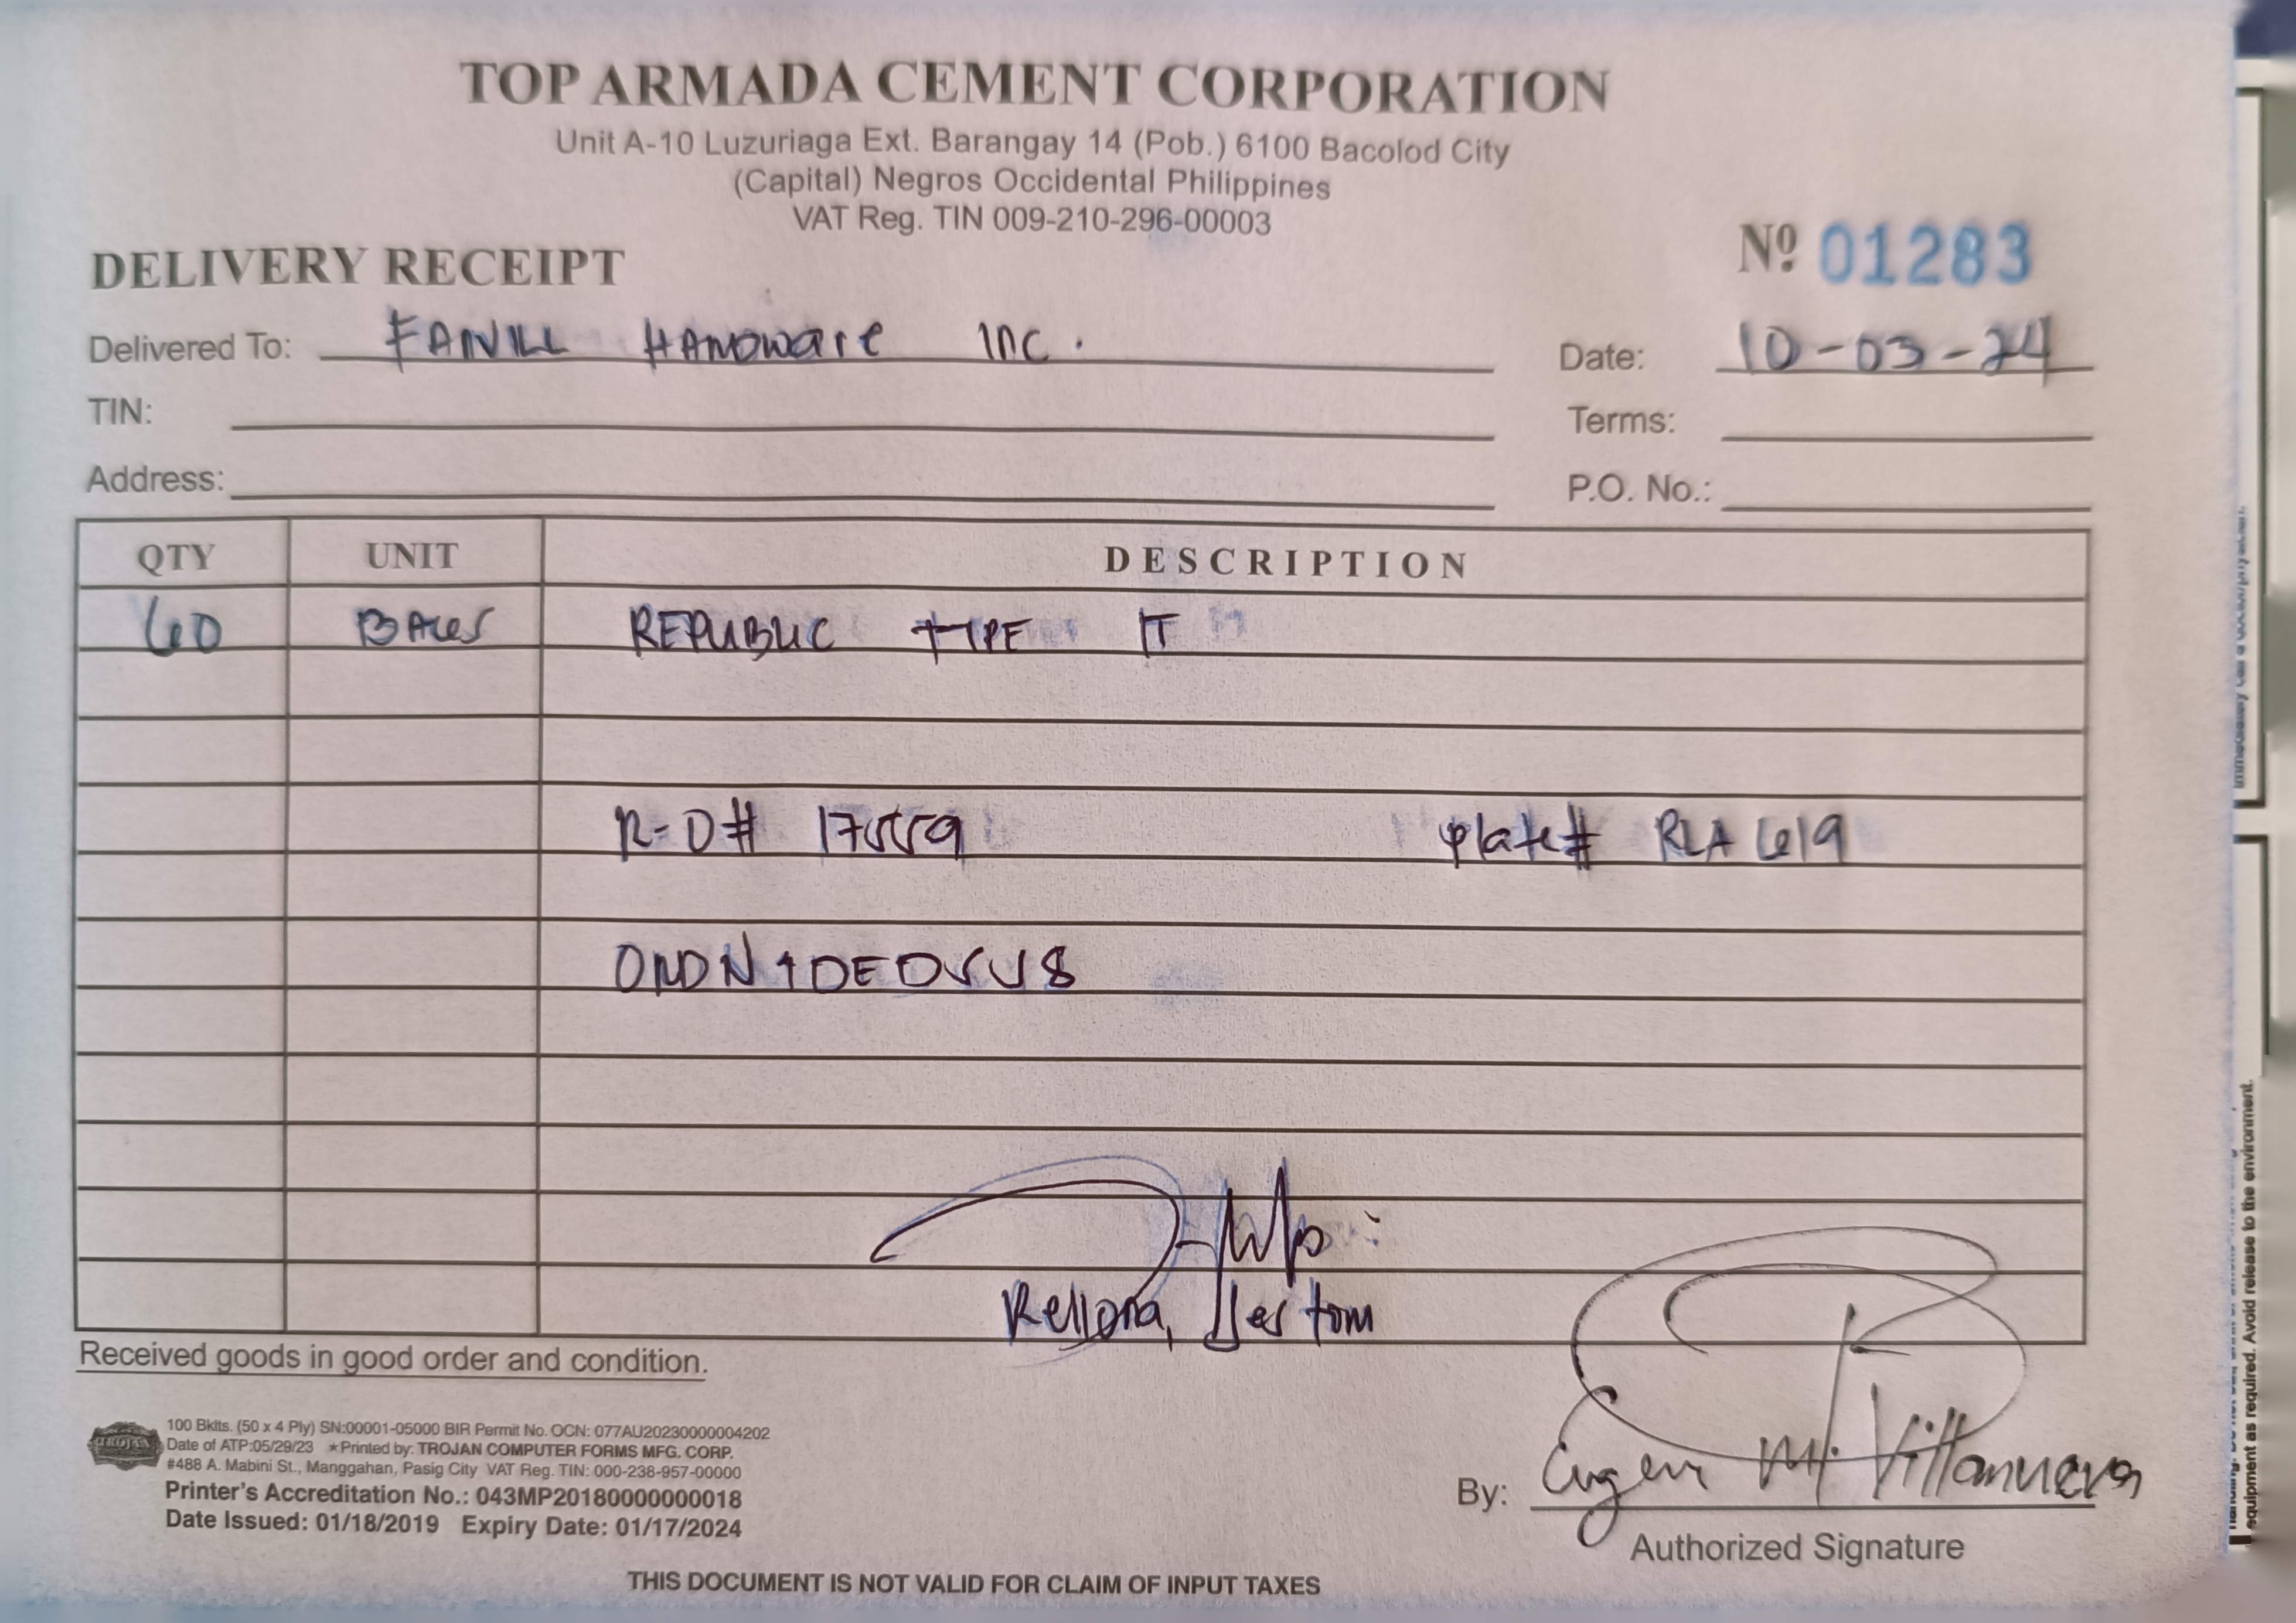 TOP ARMADA CEMENT CORPORATION
Unit A-10 Luzuriaga Ext. Barangay 14 (Pob.) 6100 Bacolod City
(Capital) Negros Occidental Philippines
VAT Reg. TIN 009-210-296-00003
DELIVERY RECEIPT
Nº 01283
Delivered To: FANVILL HARDWARE INC.
Date: 10-03-24
TIN:
Terms:
Address:
P.O. No.:
QTY UNIT DESCRIPTION
60 REPUBLIC TYPE
R-O# 17559 plate# RLA 619
Rellona,
Received goods in good order and condition.
TROJAN
100 Bklts. (50 x 4 Ply) SN:00001-05000 BIR Permit No. OCN: 077AU20230000004202
Date of ATP:05/29/23 ★Printed by: TROJAN COMPUTER FORMS MFG. CORP.
#488 A. Mabini St., Manggahan, Pasig City VAT Reg. TIN: 000-238-957-00000
Printer's Accreditation No.: 043MP20180000000018
Date Issued: 01/18/2019 Expiry Date: 01/17/2024
By: M. Villanueva
Authorized Signature
THIS DOCUMENT IS NOT VALID FOR CLAIM OF INPUT TAXES
equipment as required. Avoid release to the environment.